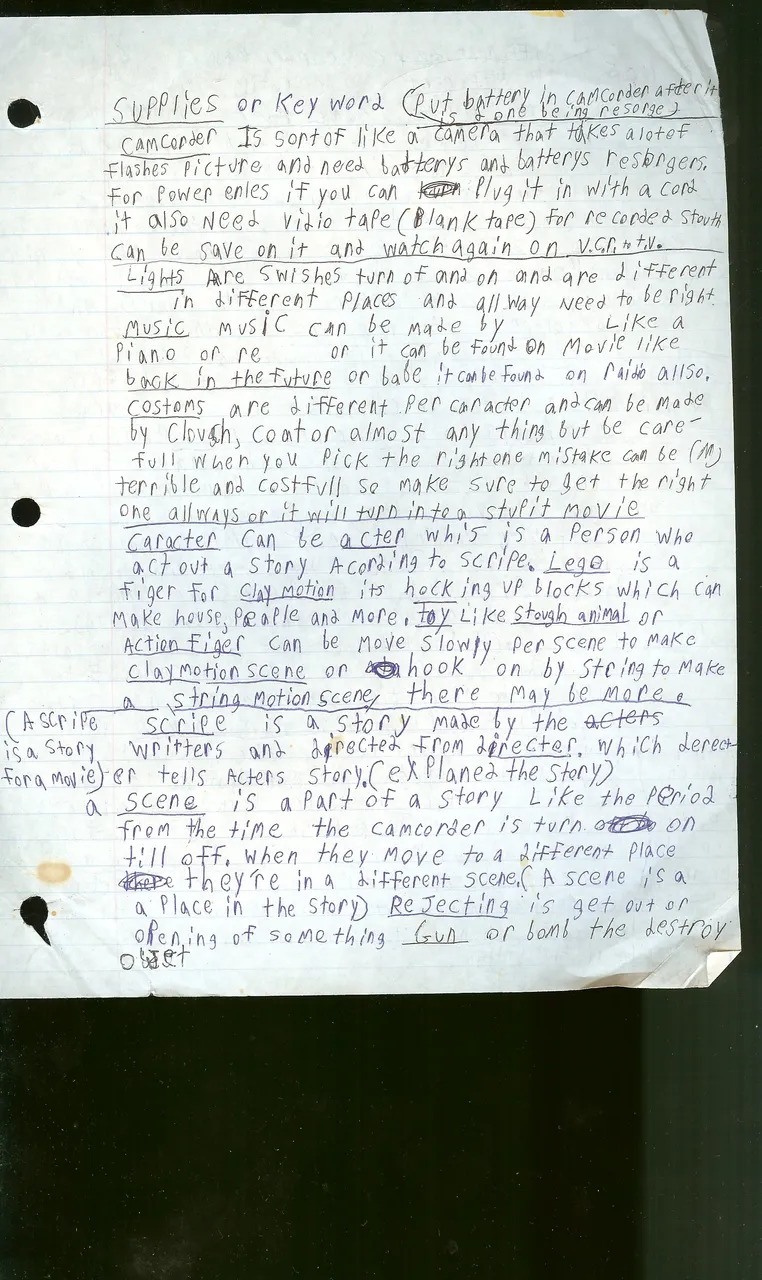 SUPPLIES or Key word (Put battery in camcorder after it
is done being resorge)
Camcorder Is sort of like a camera that takes alotof
flashes picture and need batterys and batterys resorgers.
For Power enles if you can Plug it in with a cord
it also Need vidio tape (Blank tape) for recorded stouth
can be save on it and watch again on V.C.R. to t.V.
Lights Are Swishes turn of and on and are different
in different Places and allway Need to be right
Music music can be made by Like a
Piano or re or it can be found on Movie like
back in the future or babe it can be found on raido allso.
Costoms are different Per caracter and can be made
by Clough, coat or almost any thing but be care-
full when you Pick the right one mistake can be (M)
terrible and costfull so make sure to get the right
one allways or it will turn into a stupit movie
Caracter Can be acter whis is a Person who
act out a story Acording to scripe. Lego is a
figer for Clay motion its hocking up blocks which can
Make house, People and More. toy Like Stough animal or
Action Figer can be Move slowly Per scene to make
Claymotion scene or hook on by String to Make
a string Motion scene, there may be more.
(A scripe scripe is a story made by the acters
is a story writters and directed from directer, which derect-
for a movie) er tells Acters story. (eXPlaned the story)
a scene is a Part of a story Like the Period
from the time the camcorder is turn on
till off. when they Move to a different Place
there they're in a different scene. (A scene is a
a Place in the story) Rejecting is get out or
opening of something Gun or bomb the destroy
object